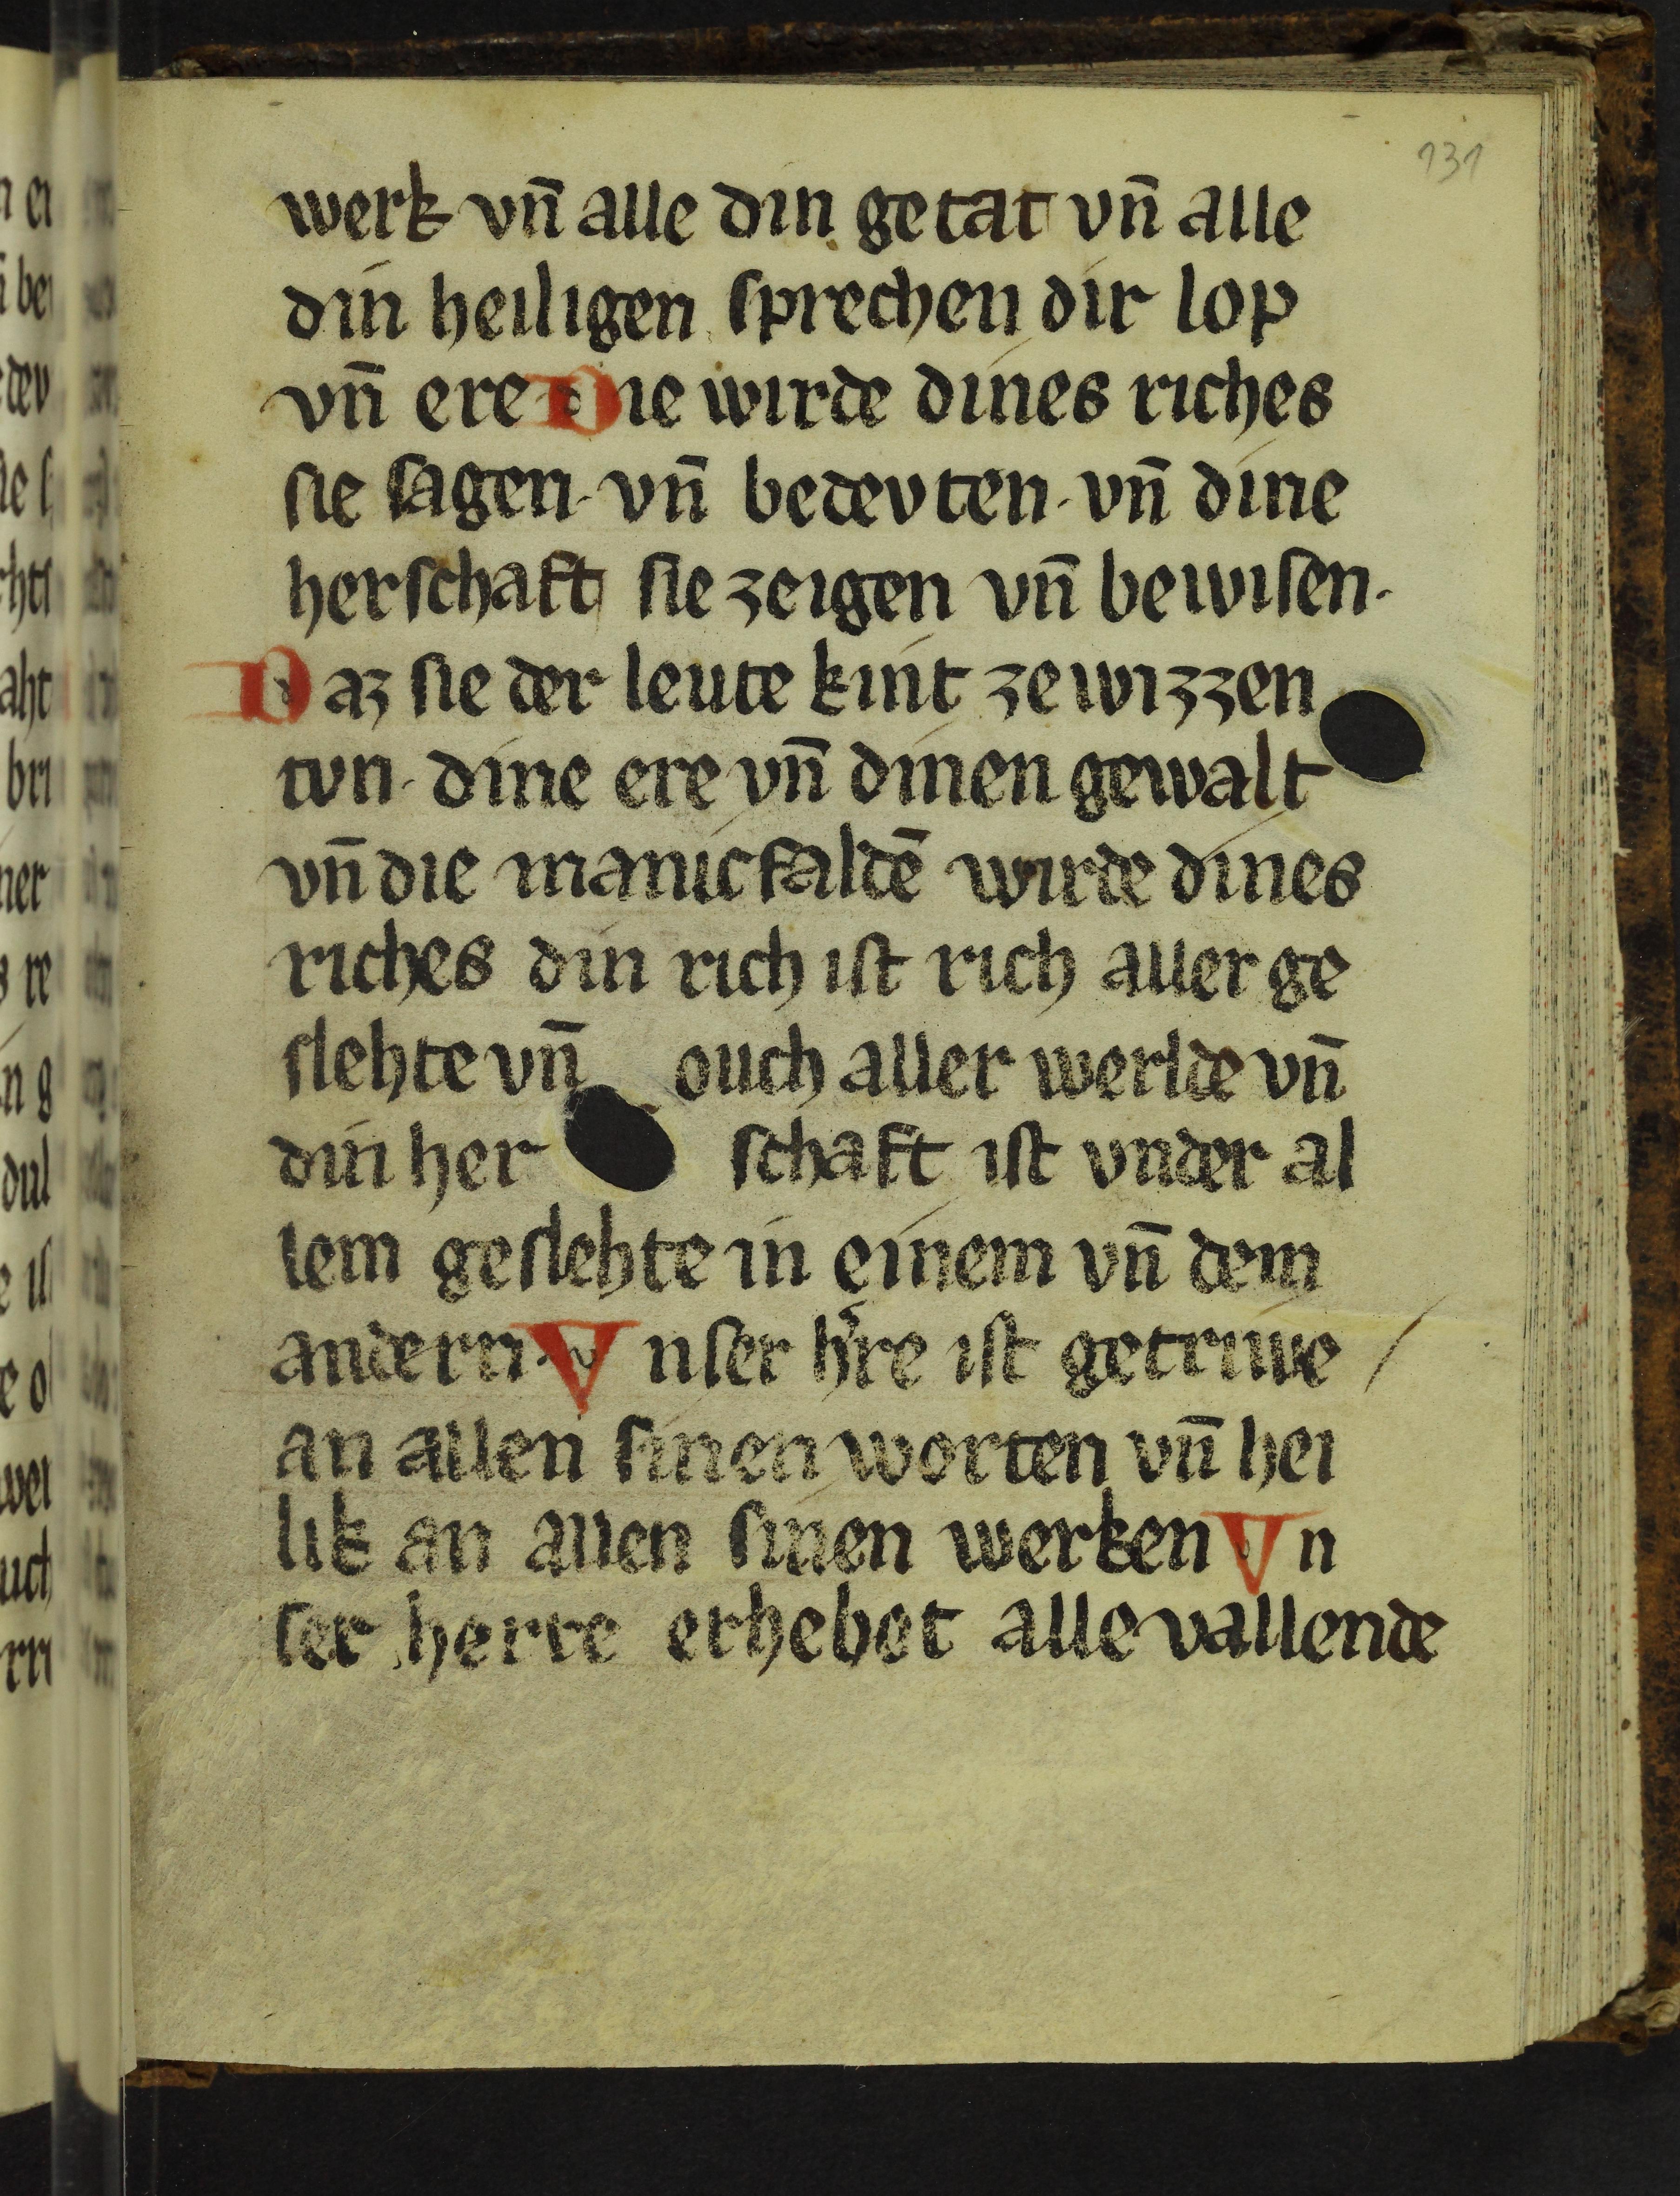 131
werk vn̄ alle din getat vn̄ alle
din heiligen sprechen dir lop
vn̄ ere Die wirde dines riches
sie sagen· vn̄ bedevten· vn̄ dine
herschaft sie zeigen vn̄ bewisen·
Daz sie der leute kint ze wizzen
tvn· dine ere vn̄ dinen gewalt
vn̄ die manicfaldē wirde dines
riches din rich ist rich aller ge
slehte vn̄ ouch aller werlde vn̄
din her schaft ist vnder al
lem geslehte in einem vn̄ dem
andern· Vnser hr̄e ist getriwe
an allen sinen worten vn̄ hei
lik an allen sinen werken Vn
ser herre erhebet alle vallende